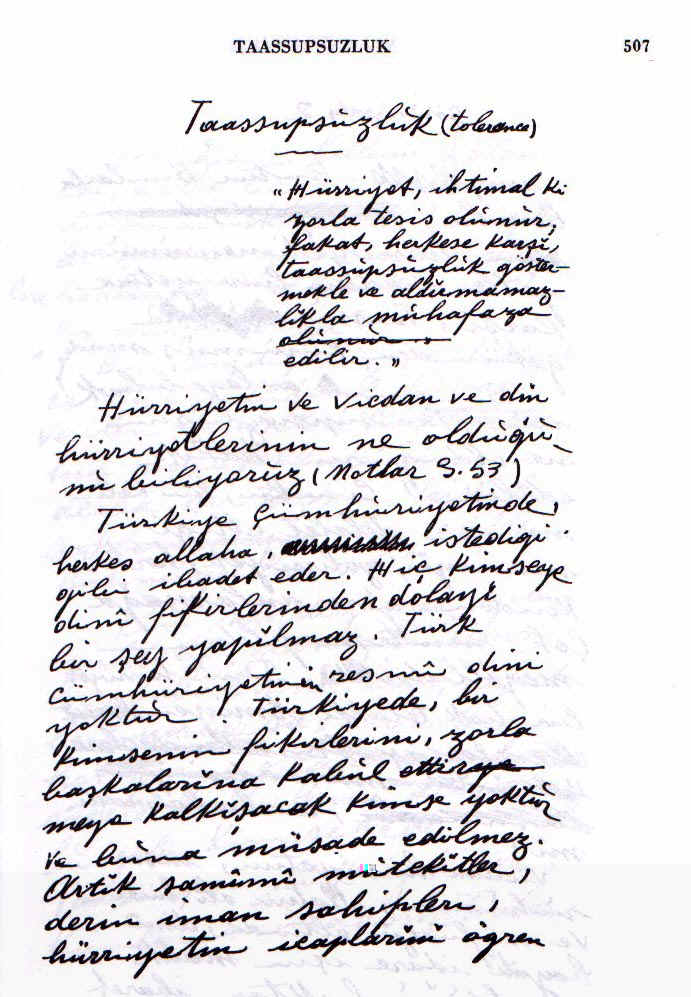 TAASSUPSUZLUK 507
Taassupsüzlük (tolerance)
« Hürriyet, ihtimal ki
zorla tesis olünür;
fakat, herkese karşi,
taassüpsüzlük göster-
mekle ve aldirmamaz-
likla mühafaza
olünür »
edilir. »
Hürriyetin ve vicdan ve din
hürriyetlerinin ne oldüğü-
nü biliyorüz (Notlar S. 53)
Türkiye Cümhüriyetinde,
herkes allaha, istediği
gibi ibadet eder. Hiç kimseye
dinî fikirlerinden dolayi
bir şey yapilmaz. Türk
cümhüriyetinin resmî dini
yoktür Türkiyede, bir
kimsenin fikirlerini, zorla
başkalarina kabül ettirye
meye kalkişacak kimse yoktür
ve büna müsade edilmez.
Artik samimî mütekitler,
derin iman sahipleri,
hürriyetin icaplarini öğren